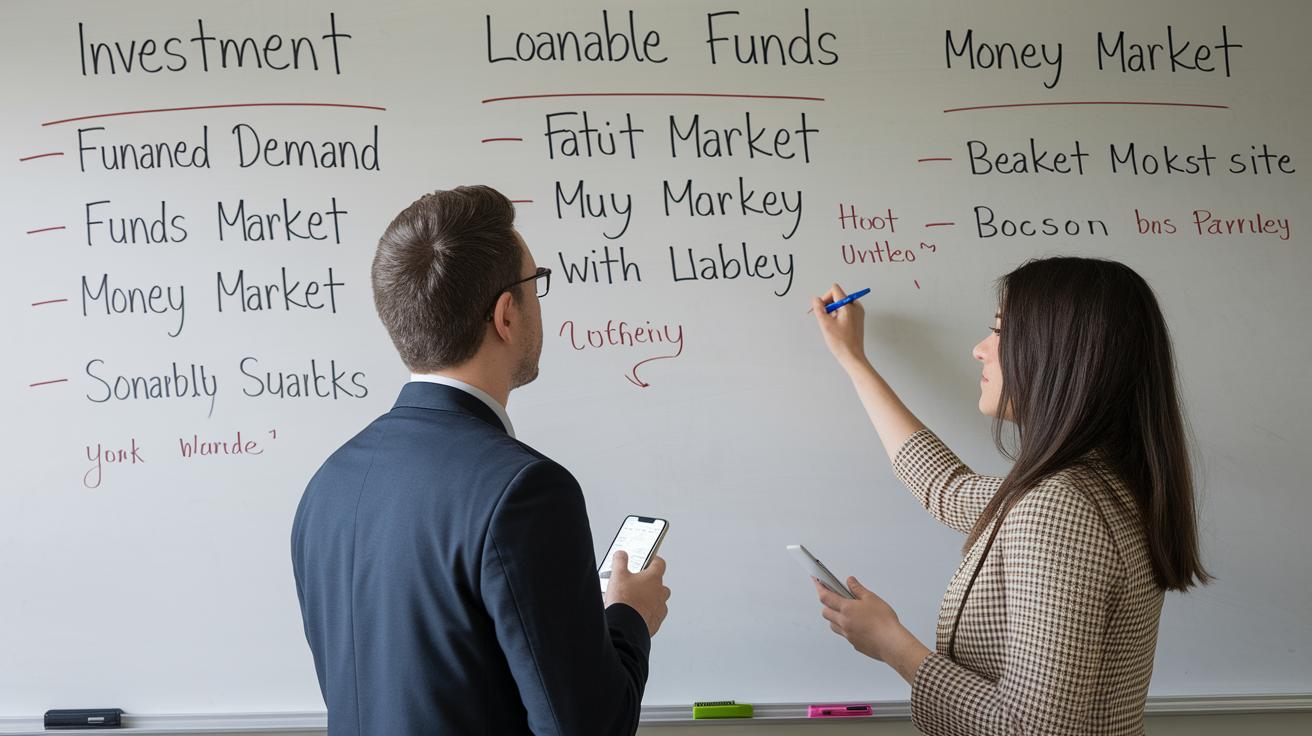 Investment
Funaned Demand
Funds Market
Money Market
Sonarbly Suartks
york
Loanable Funds
Fatut Market
Muy Markey
with Llabley
Money Market
Beaket Mokst site
Bocson bns Parnley
Hoot